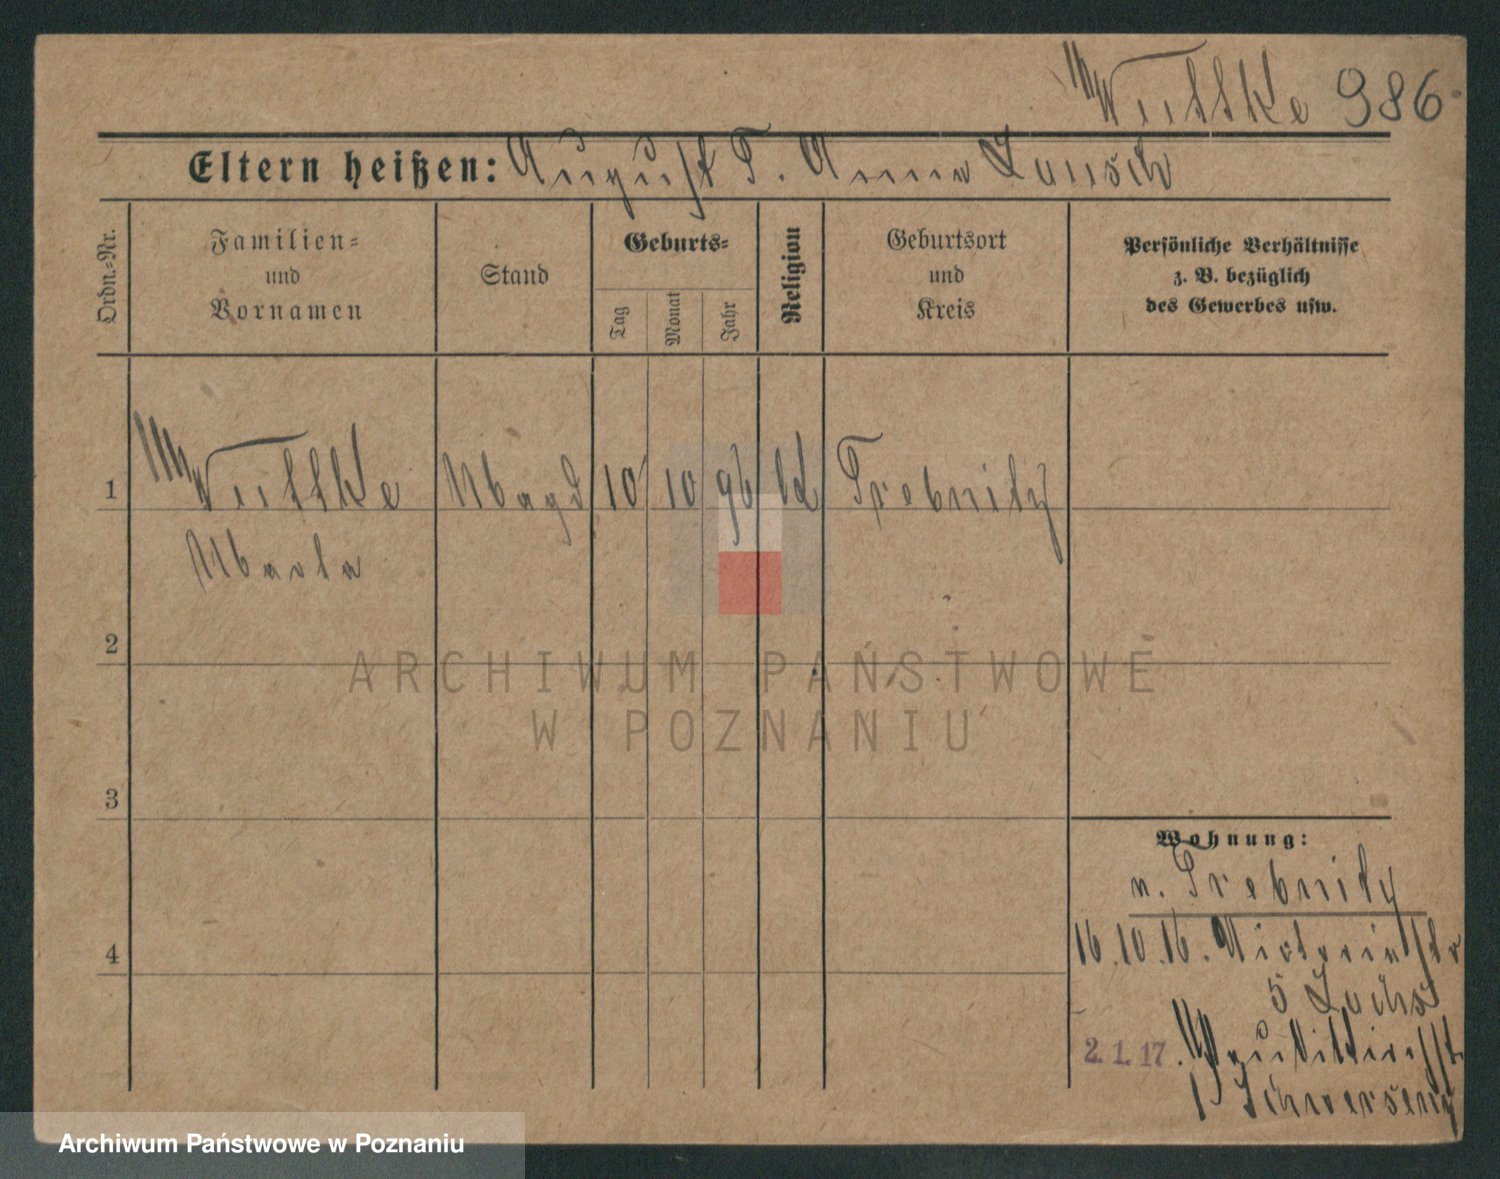 Wuttke 986
Eltern heißen: August T. Anna Lausch
Ordn.-Nr.
Familien-
und
Vornamen
Stand
Geburts-
Tag
Monat
Jahr
Religion
Geburtsort
und
Kreis
Persönliche Verhältnisse
z. B. bezüglich
des Gewerbes usw.
1 Wuttke Magd 10 10 96 Trebnitz
2
ARCHIWUM PAŃSTWOWE
W POZNANIU
3
Wohnung:
v. Trebnitz
4
16.10.16. Victoriastr
5 Luchs
2.1.17.
Archiwum Państwowe w Poznaniu